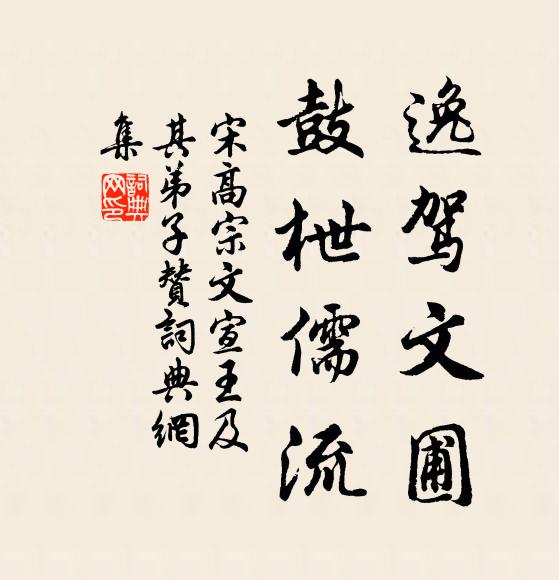 逸驾文圃
鼓枻儒流
宋高宗文宣王及
其弟子赞词典網
集
詞典
网印